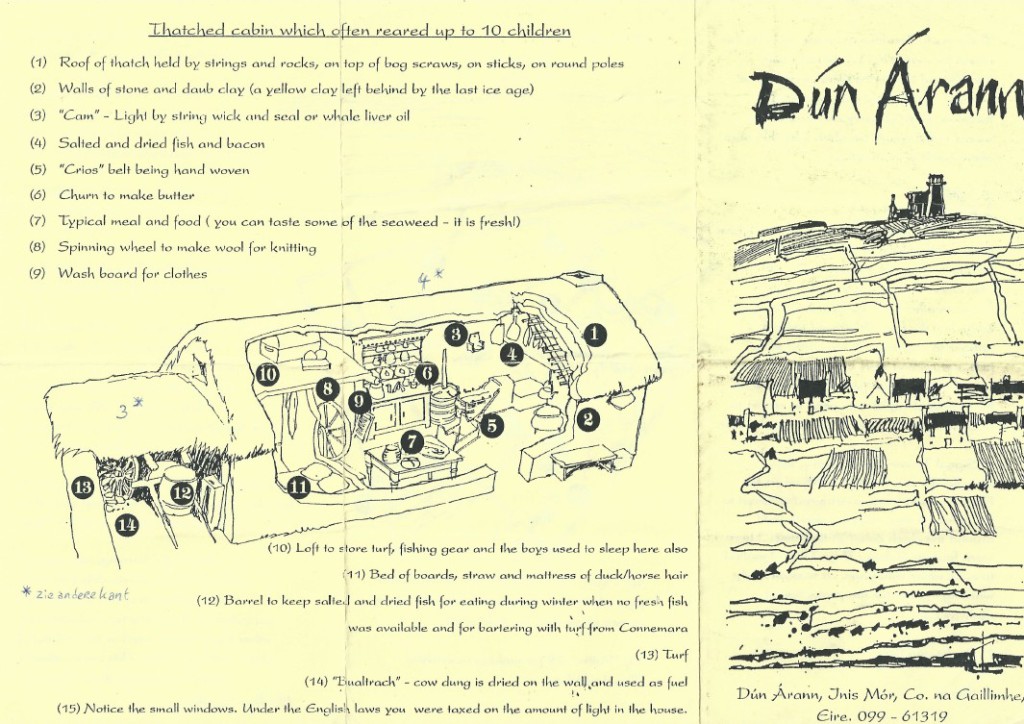 Thatched cabin which often reared up to 10 children
(1) Roof of thatch held by strings and rocks, on top of bog scraws, on sticks, on round poles
(2) Walls of stone and daub clay (a yellow clay left behind by the last ice age)
(3) "Cam" - Light by string wick and seal or whale liver oil
(4) Salted and dried fish and bacon
(5) "Crios" belt being hand woven
(6) Churn to make butter
(7) Typical meal and food ( you can taste some of the seaweed - it is fresh!)
(8) Spinning wheel to make wool for knitting
(9) Wash board for clothes
4*
3*
1
2
3
4
5
6
7
8
9
10
11
12
13
14
(10) Loft to store turf, fishing gear and the boys used to sleep here also
(11) Bed of boards, straw and mattress of duck/horse hair
(12) Barrel to keep salted and dried fish for eating during winter when no fresh fish
was available and for bartering with turf from Connemara
(13) Turf
(14) "Bualtrach" - cow dung is dried on the wall and used as fuel
(15) Notice the small windows. Under the English laws you were taxed on the amount of light in the house.
* zie andere kant
Dún Árann
Dún Árann, Inis Mór, Co. na Gaillimhe,
Eire. 099 - 61319